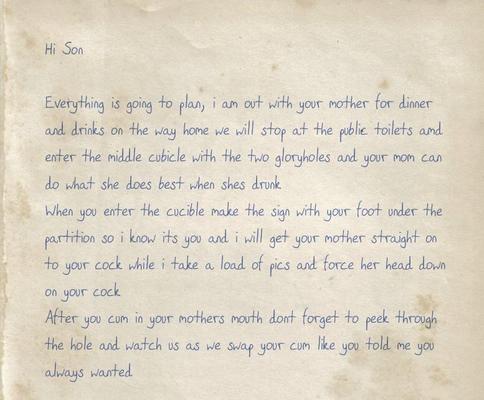 Hi Son
Everything is going to plan, i am out with your mother for dinner
and drinks on the way home we will stop at the public toilets amd
enter the middle cubicle with the two gloryholes and your mom can
do what she does best when shes drunk
When you enter the cucible make the sign with your foot under the
partition so i know its you and i will get your mother straight on
to your cock while i take a load of pics and force her head down
on your cock
After you cum in your mothers mouth dont forget to peek through
the hole and watch us as we swap your cum like you told me you
always wanted